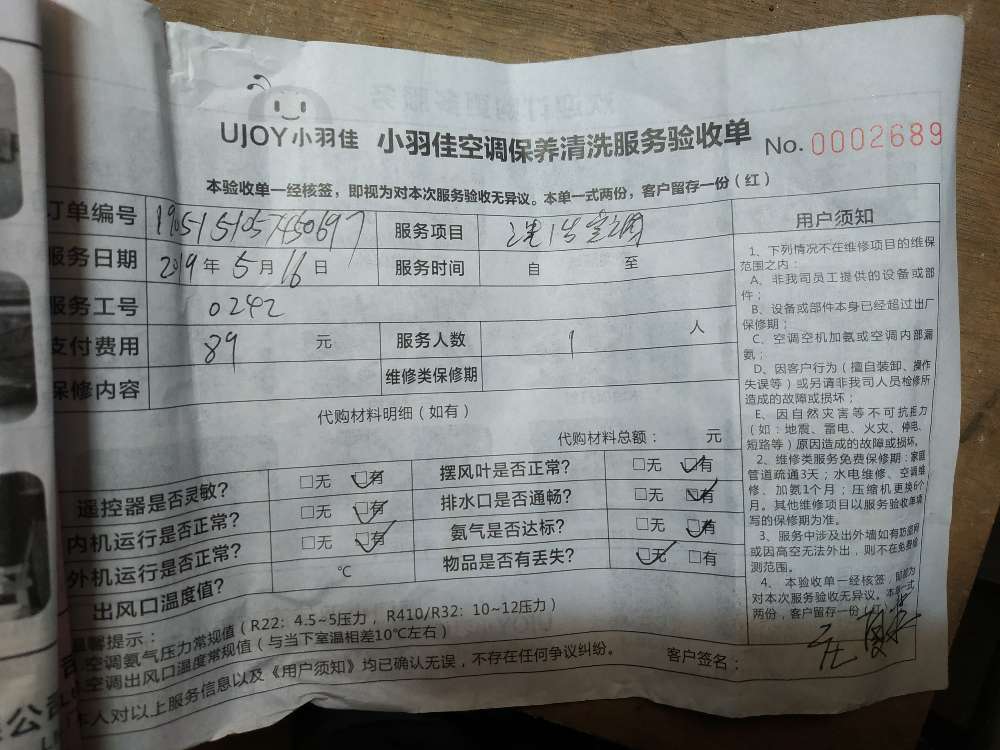 UJOY小羽佳 小羽佳空调保养清洗服务验收单 No. 0002689
本验收单一经核签，即视为对本次服务验收无异议。本单一式两份，客户留存一份（红）
订单编号 服务项目
服务日期 2019年5月16日 服务时间 自 至
服务工号 0242
支付费用 89 元 服务人数 1 人
保修内容 维修类保修期
代购材料明细（如有）
代购材料总额： 元
遥控器是否灵敏? □无 ☑有 摆风叶是否正常? □无 ☑有
内机运行是否正常? □无 ☑有 排水口是否通畅? □无 ☑有
外机运行是否正常? □无 ☑有 氨气是否达标? □无 ☑有
出风口温度值? ℃ 物品是否有丢失? ☑无 □有
温馨提示：
空调氨气压力常规值（R22: 4.5~5压力，R410/R32: 10~12压力）
空调出风口温度常规值（与当下室温相差10℃左右）
本人对以上服务信息以及《用户须知》均已确认无误，不存在任何争议纠纷。 客户签名：
用户须知
1、下列情况不在维修项目的维保
范围之内：
A、非我司员工提供的设备或部
件；
B、设备或部件本身已经超过出厂
保修期；
C、空调空机加氨或空调内部漏
氨；
D、因客户行为（擅自装卸、操作
失误等）或另请非我司人员检修所
造成的故障或损坏；
E、因自然灾害等不可抗拒力
（如：地震、雷电、火灾、停电、
短路等）原因造成的故障或损坏。
2、维修类服务免费保修期：家庭
管道疏通3天；水电维修、空调维
修、加氨1个月；压缩机更换6个
月。其他维修项目以服务验收单填
写的保修期为准。
3、服务中涉及出外墙如有防盗网
或因高空无法外出，则不在免费检
测范围。
4、本验收单一经核签，即视为
对本次服务验收无异议。本单一式
两份，客户留存一份（红）